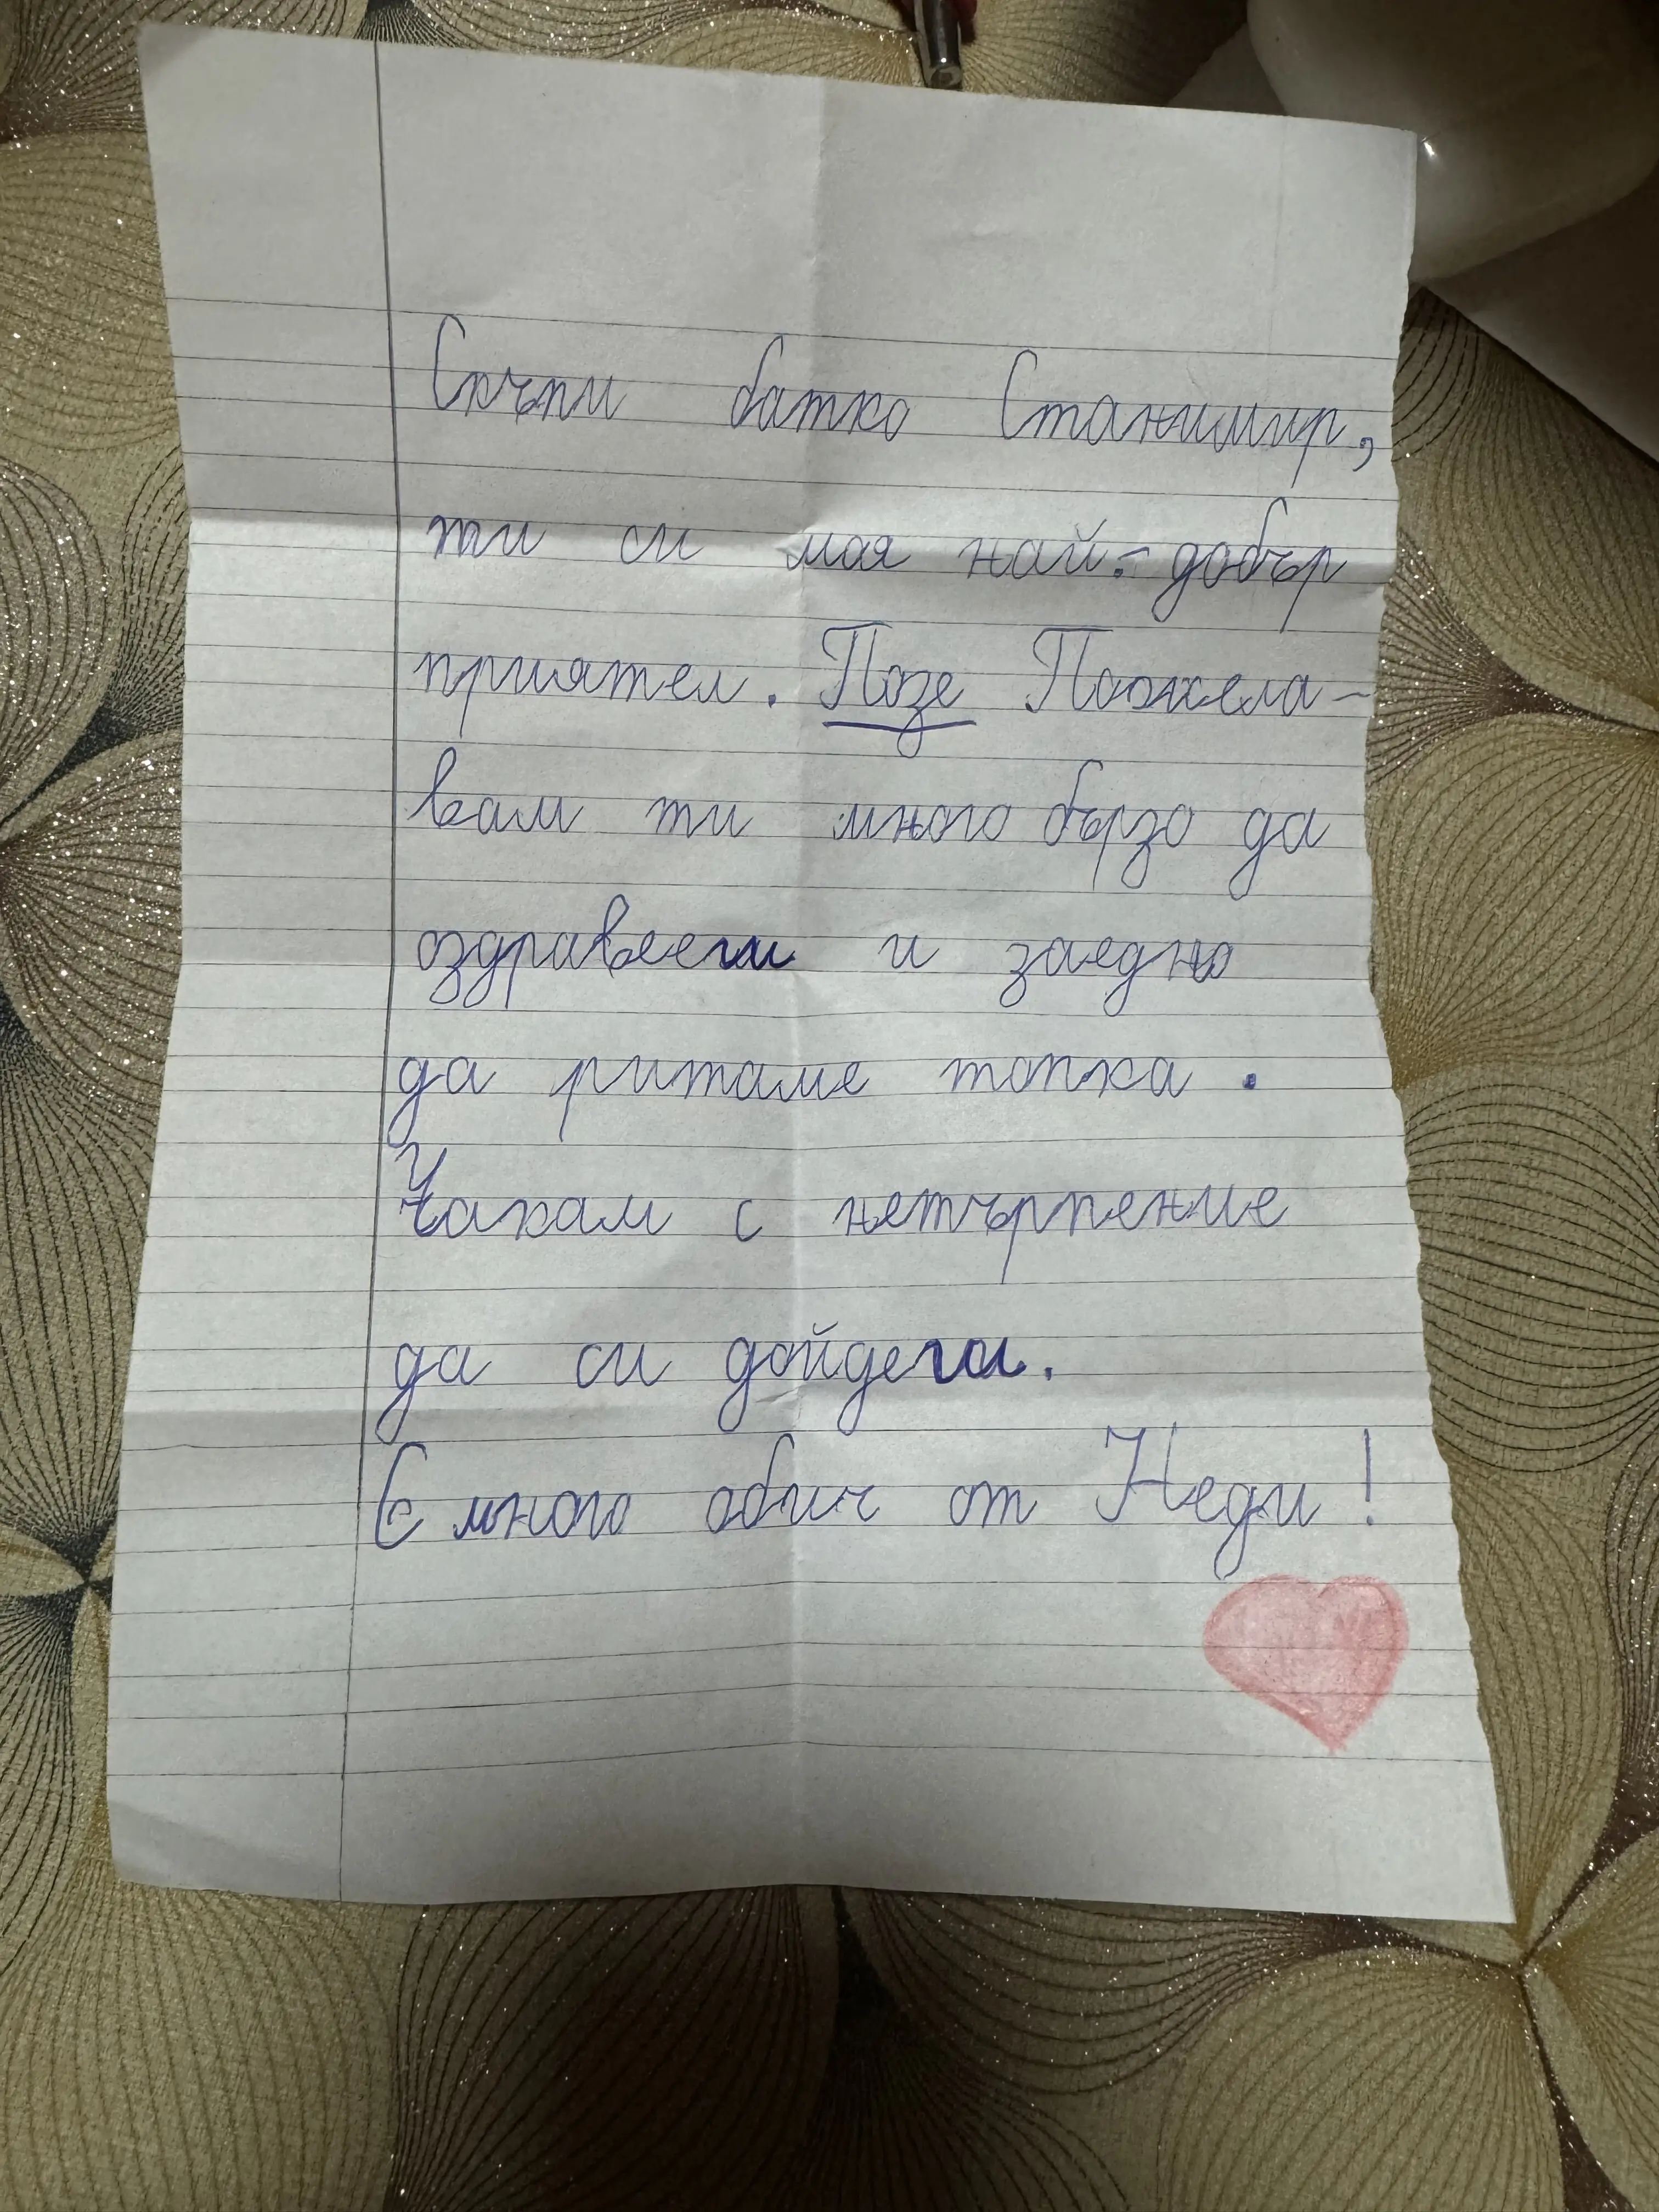 Скъпи батко Станимир,
ти си мая най-добър
приятел. Позе Пожела-
вам ти много бързо да
оздравееш и заедно
да ритаме топка.
Чакам с нетърпение
да си дойдеш.
С много обич от Неди!